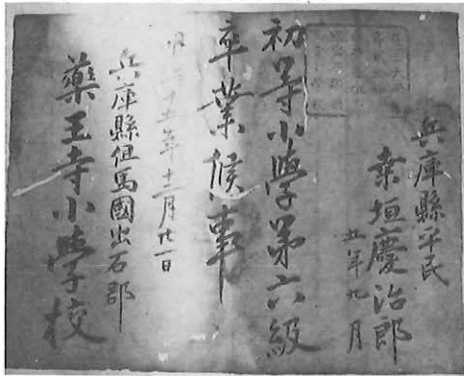 兵庫縣平民
桒垣慶治郎
五年九月
初等小學苐六級
卒業候事
明治十五年十二月廿一日
兵庫縣但馬國出石郡
藥王寺小學校